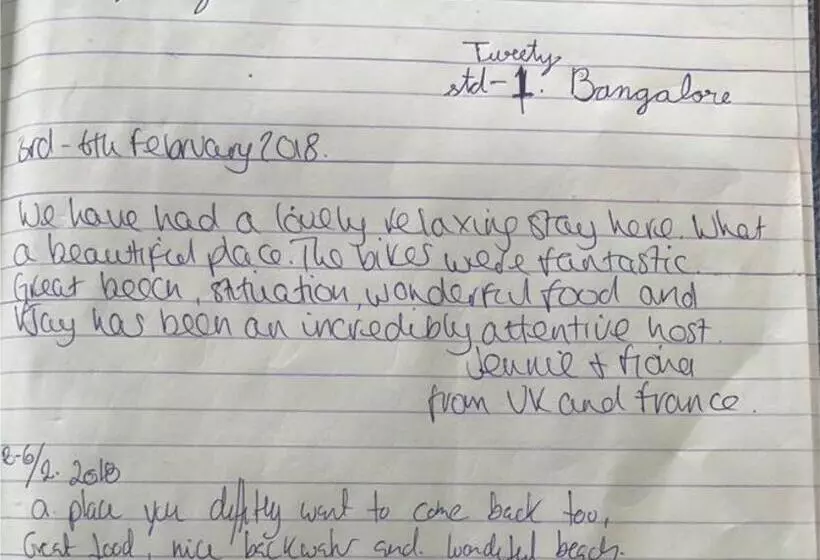 Tweety
std-1. Bangalore
3rd-6th February 2018.
We have had a lovely relaxing stay here. What
a beautiful place. The bikes were fantastic.
Great beach, situation, wonderful food and
Vijay has been an incredibly attentive host.
Jennie + Fiona
from UK and France.
2-6/2. 2018
a place you want to come back too,
Great food, nice and wonderful beach.